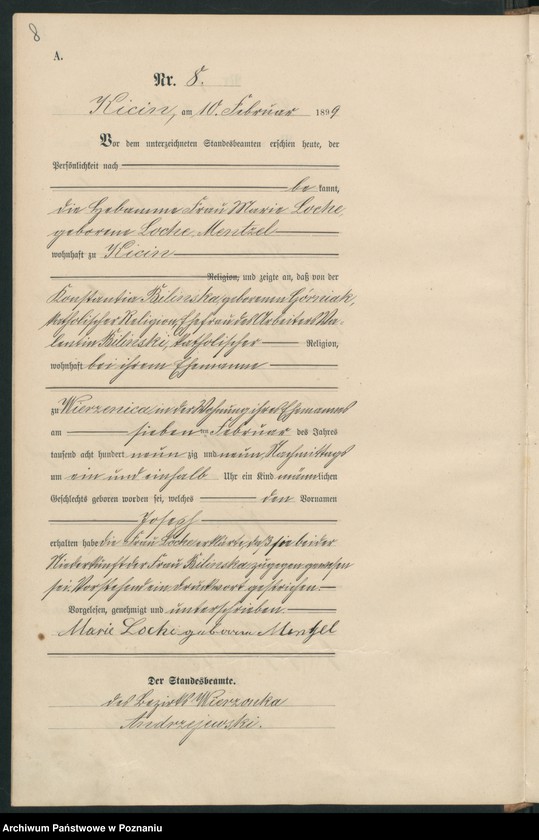 8
A.
Nr. 8.
Kicin, am 10. Februar 1899
Vor dem unterzeichneten Standesbeamten erschien heute, der
Persönlichkeit nach
be kannt,
die Hebamme Frau Marie Loche
geborene Loche Mentzel
wohnhaft zu Kicin
Religion, und zeigte an, daß von der
Konstantia Bilinska geborenen Górniak,
katholischer Religion, Ehefrau des Arbeiters Va-
lentin Bilinski, katholischer Religion,
wohnhaft bei ihrem Ehemanne
zu Wierzenica in der Wohnung ihres Ehemannes
am sieben ten Februar des Jahres
tausend acht hundert neun zig und neun Nachmittags
um ein und einhalb Uhr ein Kind männlichen
Geschlechts geboren worden sei, welches den Vornamen
Joseph
erhalten habe die Frau Loche erklärte, daß sie bei der
Niederkunft der Frau Bilinska zugegen gewesen
sei. Vorstehend ein Druckwort gestrichen.
Vorgelesen, genehmigt und unterschrieben.
Marie Loche geborene Mentzel
Der Standesbeamte.
des Bezirks Wierzonka
Andrzejewski.
Archiwum Państwowe w Poznaniu